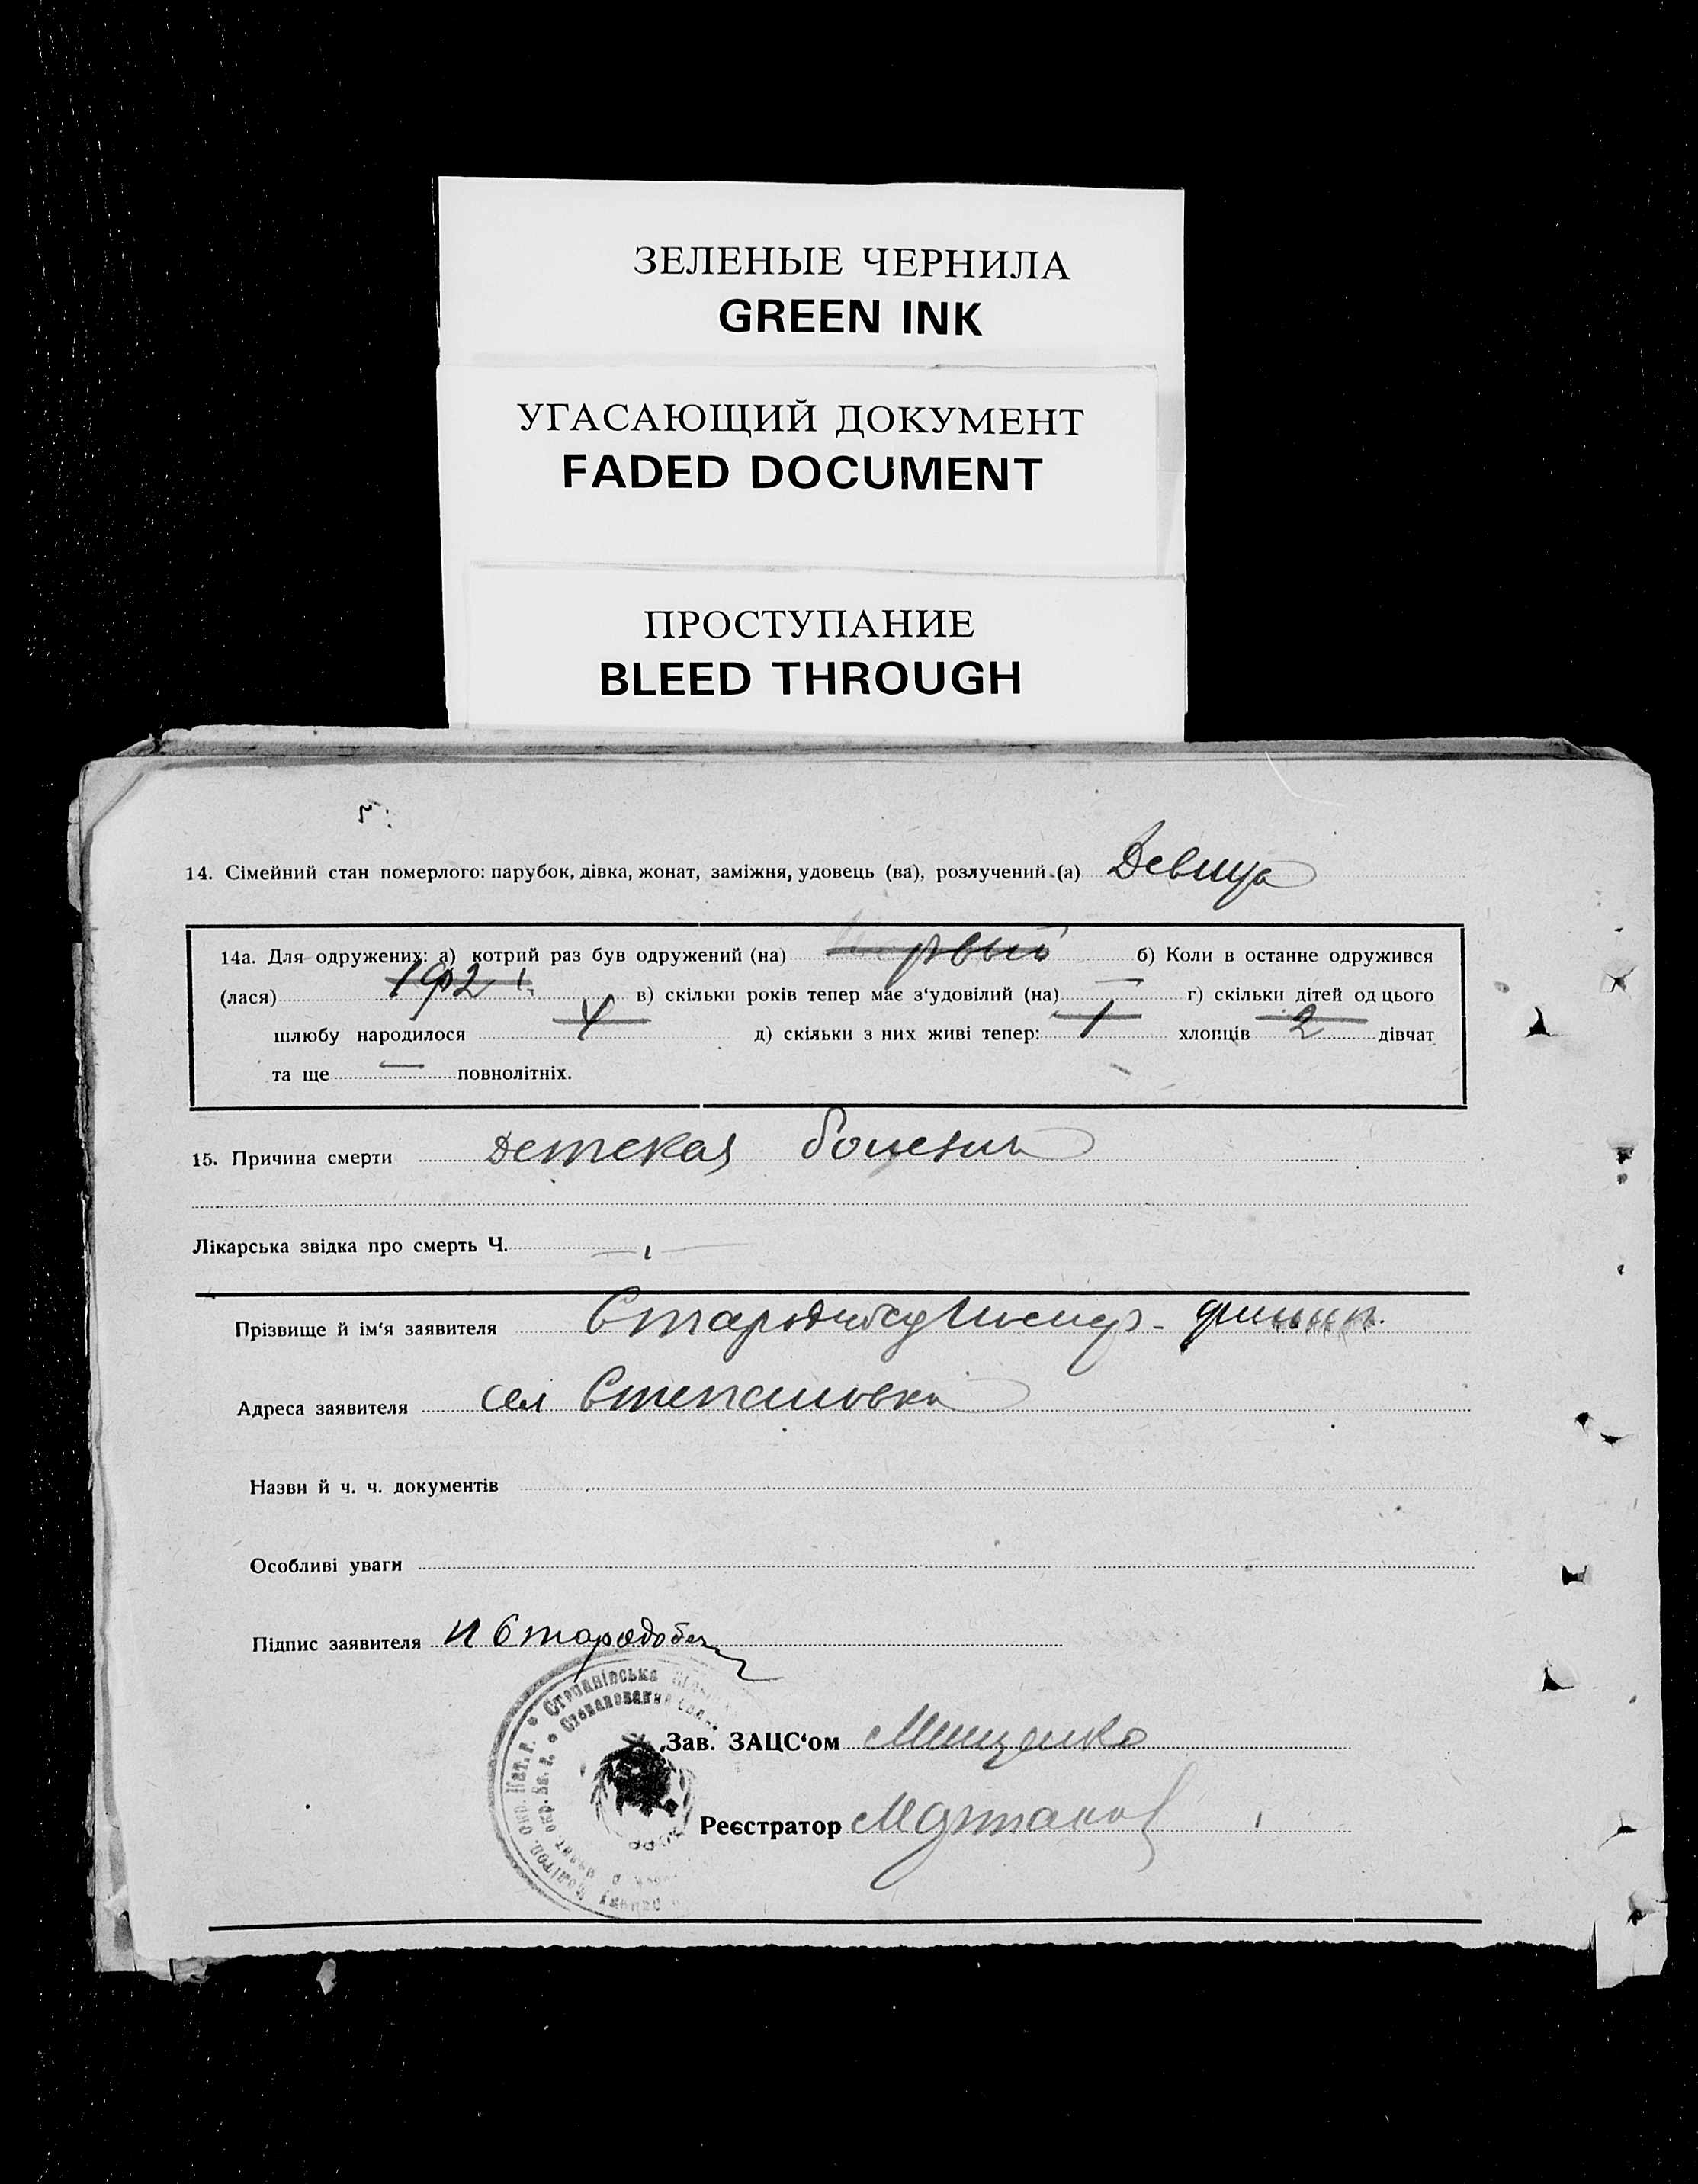 ЗЕЛЕНЫЕ ЧЕРНИЛА
GREEN INK
УГАСАЮЩИЙ ДОКУМЕНТ
FADED DOCUMENT
ПРОСТУПАНИЕ
BLEED THROUGH
14. Сімейний стан померлого: парубок, дівка, жонат, заміжня, удовець (ва), розлучений (а) Девица
14а. Для одружених: а) котрий раз був одружений (на) первый б) Коли в останне одружився
(лася) 192 в) скільки років тепер має з'удовілий (на) — г) скільки дітей од цього
шлюбу народилося 4 д) скільки з них живі тепер: 1 хлопців 2 дівчат
та ще — повнолітніх.
15. Причина смерти Детская болезнь
Лікарська звідка про смерть Ч.
Прізвище й ім'я заявителя
Адреса заявителя сел Степановка
Назви й ч. ч. документів
Особливі уваги
Підпис заявителя И Стародуб
Степанівська
Зав. ЗАЦС'ом Мищенко
Реєстратор